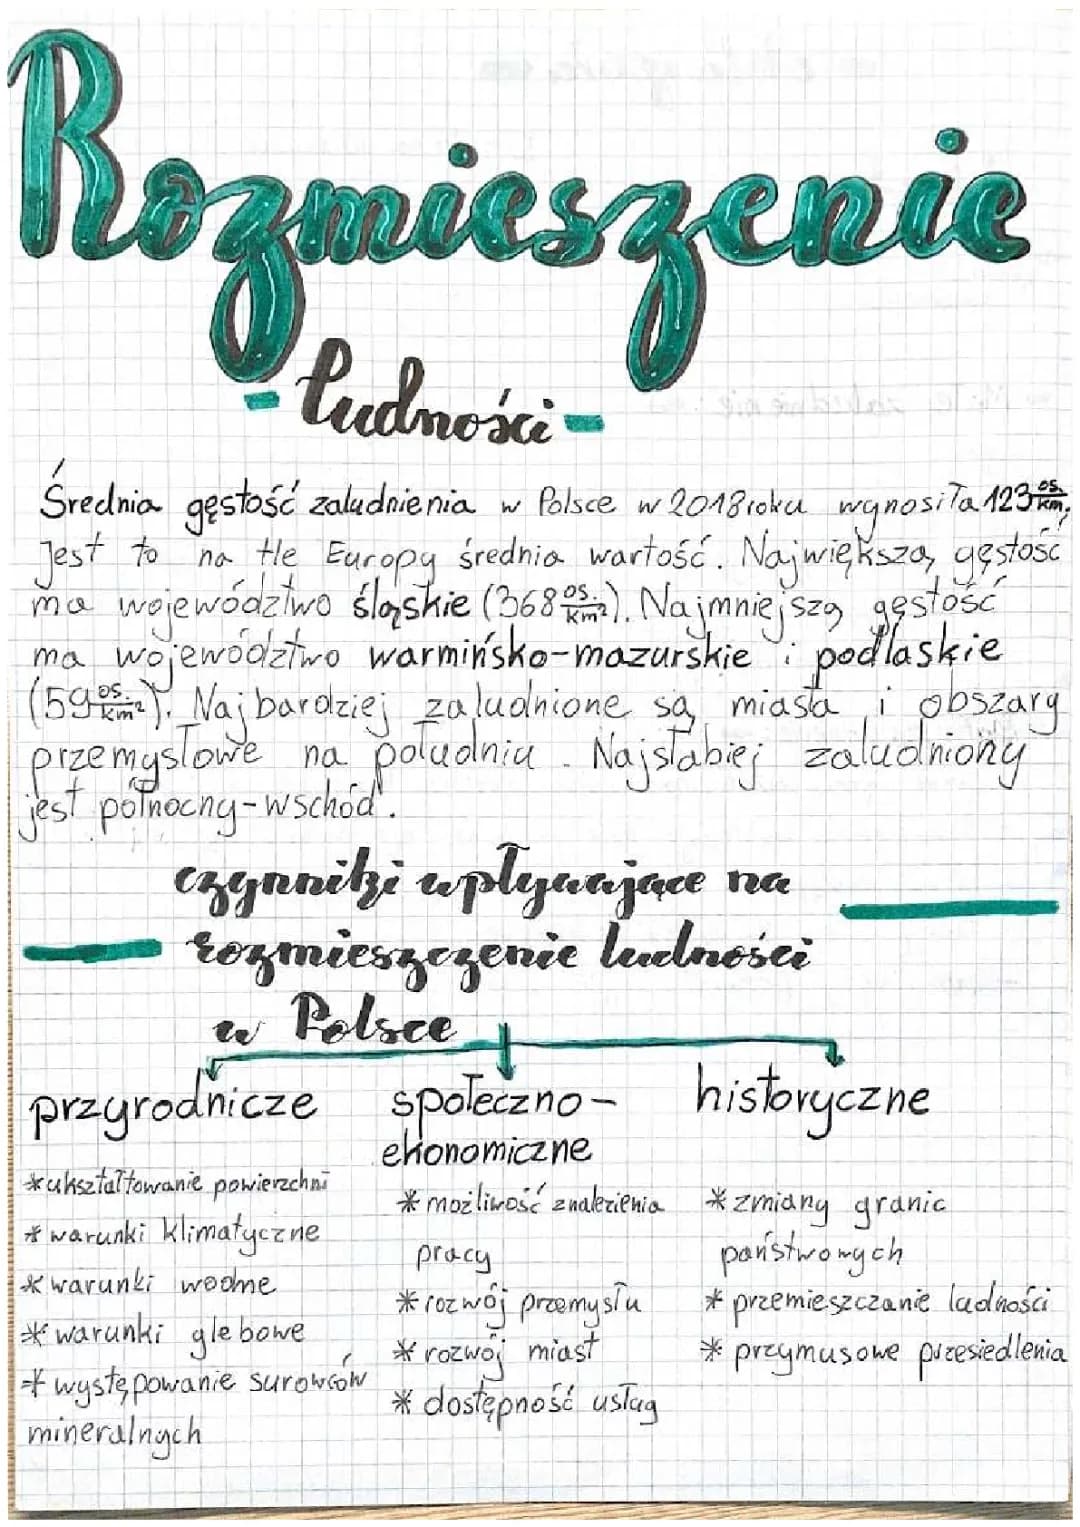 Rozmieszenie
- ludności -
Średnia gęstość zaludnienia w Polsce w 2018 roku wynosiła 123 os./km.
Jest to na tle Europy średnia wartość. Największą gęstość
ma województwo śląskie (368 os./km²). Najmniejszą gęstość
ma województwo warmińsko-mazurskie i podlaskie
(59 os./km²). Najbardziej zaludnione są miasta i obszary
przemysłowe na południu. Najsłabiej zaludniony
jest północny-wschód.
czynniki wpływające na
rozmieszczenie ludności
w Polsce
przyrodnicze
*ukształtowanie powierzchni
*warunki klimatyczne
*warunki wodne
*warunki glebowe
*występowanie surowców
mineralnych
społeczno-
ekonomiczne
*możliwość znalezienia
pracy
*rozwój przemysłu
*rozwój miast
*dostępność usług
historyczne
*zmiany granic
państwowych
*przemieszczanie ludności
*przymusowe przesiedlenia